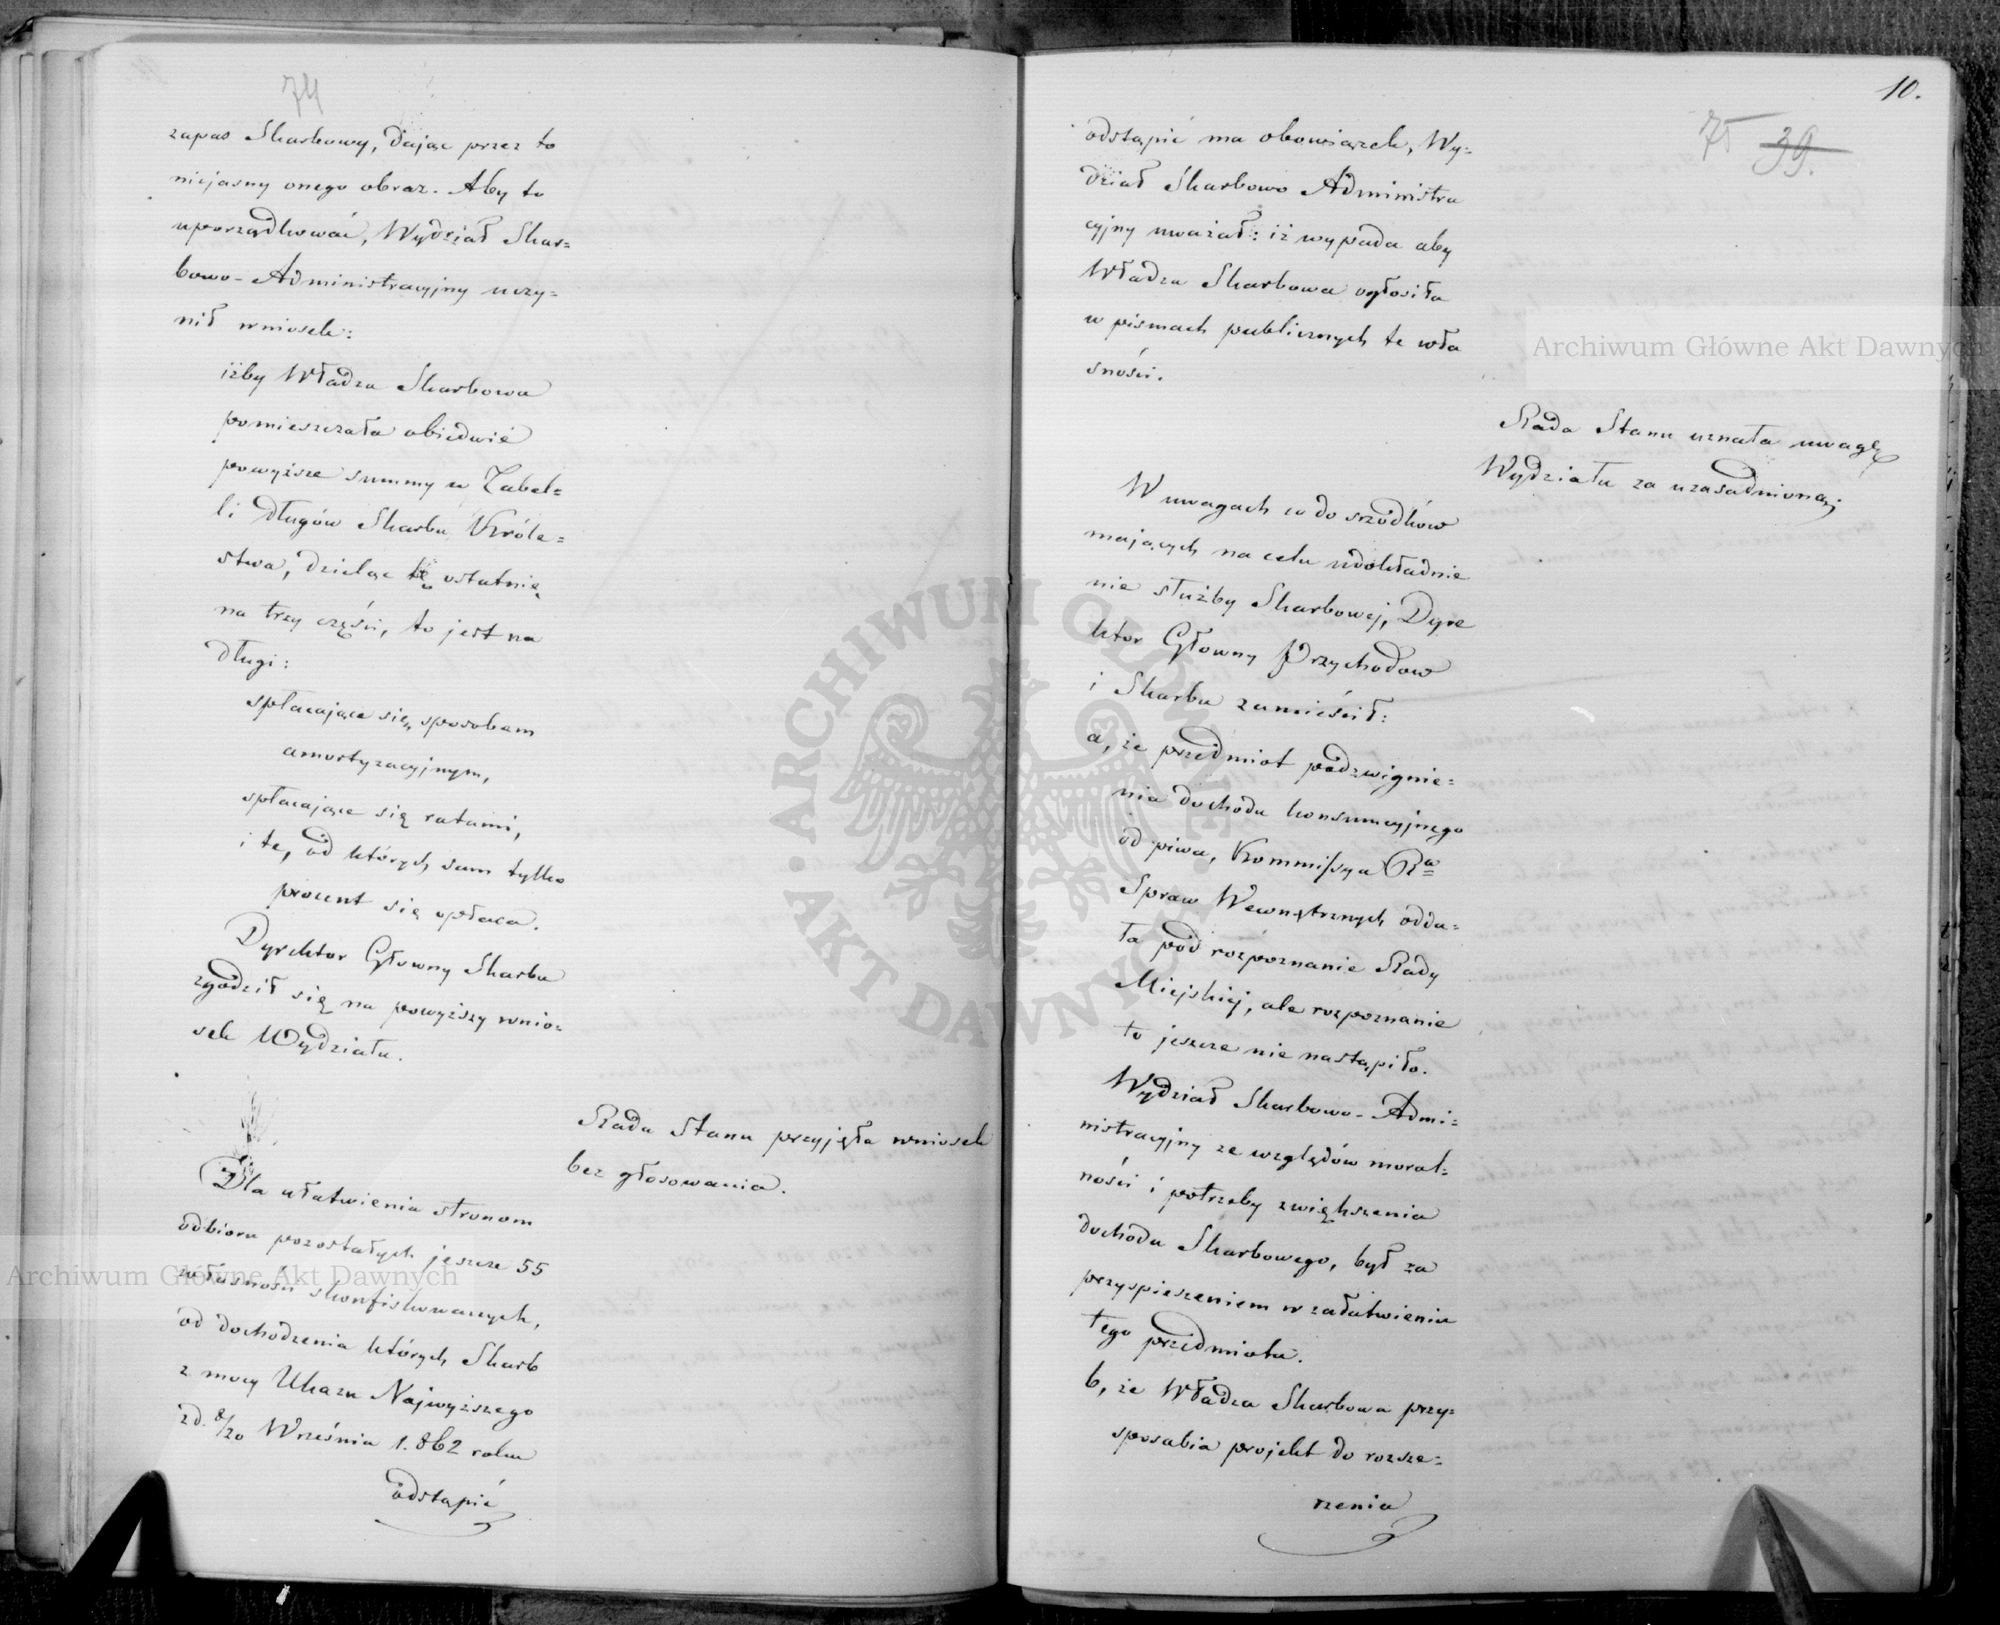 74
zapas Skarbowy, dając przez to
niejasny onego obraz. Aby to
uporządkować, Wydział Skar=
bowo-Administracyjny uczy=
nił wniosek:
iżby Władza Skarbowa
pomieszczała obiedwie
powyższe summy w Tabel=
li długów Skarbu Króle=
stwa, dzieląc tę ostatnią
na trzy części, to jest na
długi:
spłacające się sposobem
amortyzacyjnym,
spłacające się ratami,
i te, od których sam tylko
procent się opłaca.
Dyrektor Główny Skarbu
zgodził się na powyższy wnio=
sek Wydziału.
Rada Stanu przyjęła wniosek
bez głosowania.
Dla ułatwienia stronom
odbioru pozostałych jeszcze 55
własności skonfiskowanych,
od dochodzenia których Skarb
z mocy Ukazu Najwyższego
z d. 8/20 Września 1862 roku
odstąpić
10.
75 39.
odstąpić ma obowiązek, Wy=
dział Skarbowo Administra
cyjny uważał: iż wypada aby
Władza Skarbowa ogłosiła
w pismach publicznych te wła
sności.
Rada Stanu uznała uwagę
Wydziału za uzasadnioną;
W uwagach co do srzodków
mających na celu udokładnie
nie służby Skarbowej, Dyre
ktor Głowny Przychodow
i Skarbu zamieścił:
a, że przedmiot podzwignie=
nia dochodu konsumcyjnego
od piwa, Kommissya Rª
Spraw Wewnętrznych odda=
ła pod rozpoznanie Rady
Miejskiej, ale rozpoznanie
to jeszcze nie nastąpiło.
Wydział Skarbowo-Admi=
nistracyjny ze względów moral=
ności i potrzeby zwiększenia
dochodu Skarbowego, był za
przyspieszeniem w załatwieniu
tego przedmiotu.
b, że Władza Skarbowa przy=
sposabia projekt do rozsze=
rzenia
Archiwum Główne Akt Dawnych
Archiwum Główne Akt Dawnych
ARCHIWUM GŁÓWNE · AKT DAWNYCH ·